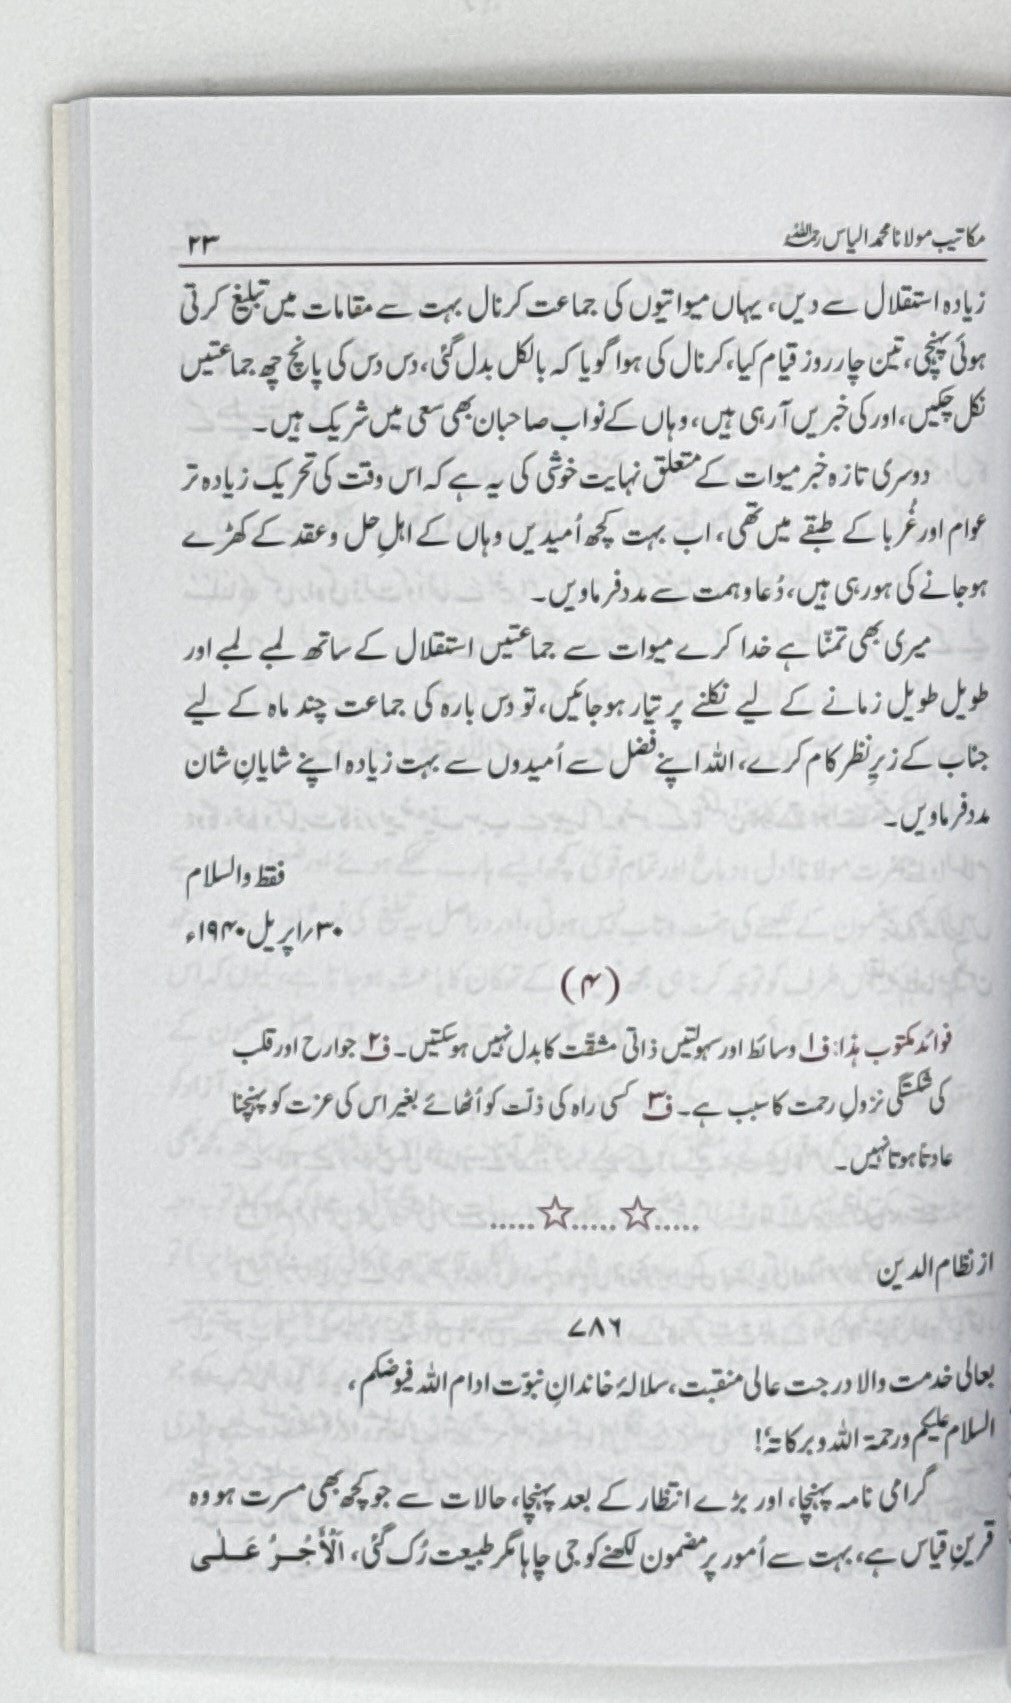 مکاتیب مولانا محمد الیاس رحمۃ اللہ علیہ ۲۳
زیادہ استقلال سے دیں، یہاں میواتیوں کی جماعت کرنال بہت سے مقامات میں تبلیغ کرتی
ہوئی پہنچی، تین چار روز قیام کیا، کرنال کی ہوا گویا کہ بالکل بدل گئی، دس دس کی پانچ چھ جماعتیں
نکل چکیں، اور کی خبریں آرہی ہیں، وہاں کے نواب صاحبان بھی سعی میں شریک ہیں۔
دوسری تازہ خبر میوات کے متعلق نہایت خوشی کی یہ ہے کہ اس وقت کی تحریک زیادہ تر
عوام اور غُربا کے طبقے میں تھی، اب بہت کچھ اُمیدیں وہاں کے اہلِ حل و عقد کے کھڑے
ہوجانے کی ہورہی ہیں، دُعا و ہمت سے مدد فرماویں۔
میری بھی تمنّا ہے خدا کرے میوات سے جماعتیں استقلال کے ساتھ لمبے لمبے اور
طویل طویل زمانے کے لیے نکلنے پر تیار ہوجائیں، تو دس بارہ کی جماعت چند ماہ کے لیے
جناب کے زیرِ نظر کام کرے، اللہ اپنے فضل سے اُمیدوں سے بہت زیادہ اپنے شایانِ شان
مدد فرماویں۔
فقط والسلام
۳۰/اپریل ۱۹۴۰ء
(۴)
فوائد مکتوب ہٰذا: ف۱ وسائط اور سہولتیں ذاتی مشقّت کا بدل نہیں ہوسکتیں۔ ف۲ جوارح اور قلب
کی شکستگی نزولِ رحمت کا سبب ہے۔ ف۳ کسی راہ کی ذلّت کو اُٹھائے بغیر اس کی عزت کو پہنچنا
عادتاً ہوتا نہیں۔
.....☆.....☆.....
از نظام الدین
۷۸۶
بعالی خدمت والا درجت عالی منقبت، سلالۂ خاندانِ نبوّت ادام اللہ فیوضکم،
السلام علیکم ورحمۃ اللہ وبرکاتہٗ!
گرامی نامہ پہنچا، اور بڑے انتظار کے بعد پہنچا، حالات سے جو کچھ بھی مسرت ہو وہ
قرینِ قیاس ہے، بہت سے اُمور پر مضمون لکھنے کو جی چاہا مگر طبیعت رُک گئی، اَلْأَجْرُ عَلٰی